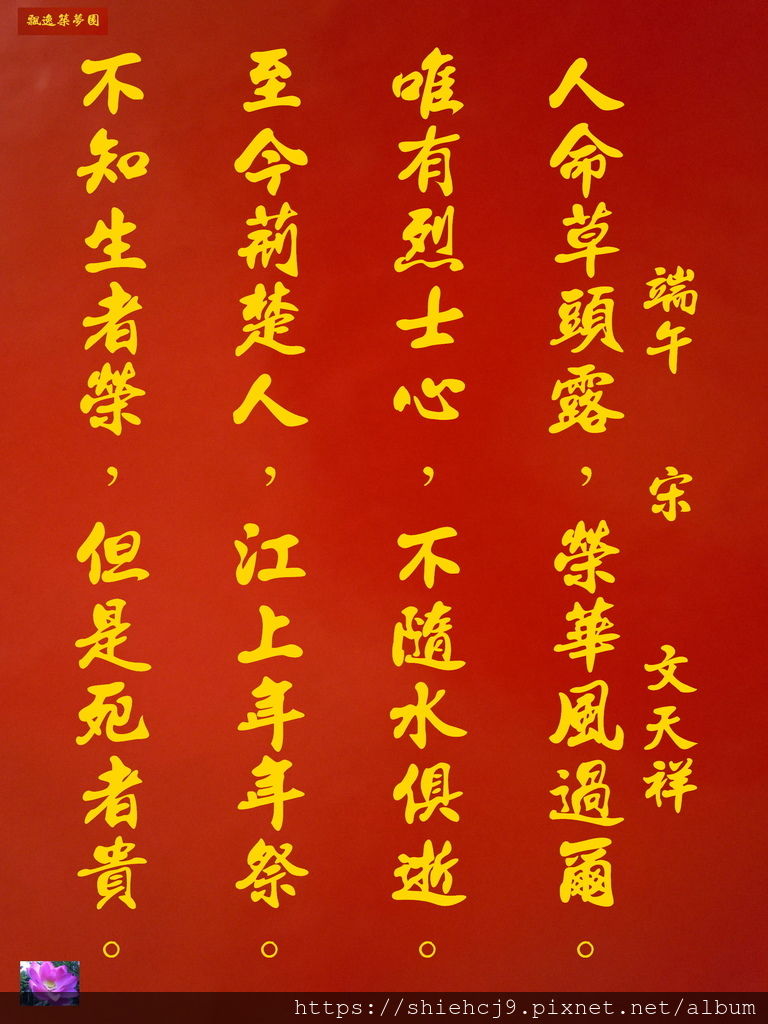 飄逸築夢園
端午 宋 文天祥
人命草頭露，榮華風過爾。
唯有烈士心，不隨水俱逝。
至今荊楚人，江上年年祭。
不知生者榮，但是死者貴。
https://shiehcj9.pixnet.net/album